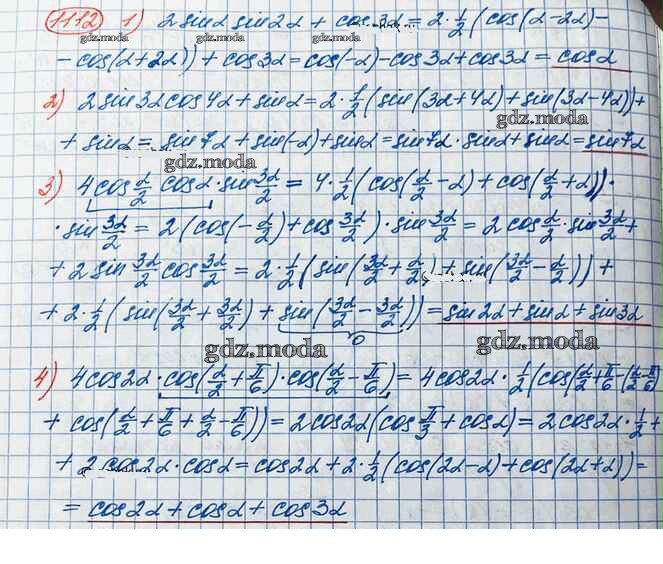 1112 1) 2 sinα sin2α + cos 3α = 2·1/2 (cos(α-2α) -
gdz.moda gdz.moda gdz.moda
- cos(α+2α)) + cos3α = cos(-α) - cos3α + cos3α = cosα
2) 2 sin3α cos4α + sinα = 2·1/2 (sin(3α+4α) + sin(3α-4α)) +
+ sinα = sin7α + sin(-α) + sinα = sin7α · sinα + sinα = sin7α
gdz.moda gdz.moda
3) 4cos α/2 cosα · sin 3α/2 = 4·1/2 (cos(α/2 - α) + cos(α/2 + α)) ·
· sin 3α/2 = 2 (cos(-α/2) + cos 3α/2) · sin 3α/2 = 2 cos α/2 · sin 3α/2 +
+ 2 sin 3α/2 cos 3α/2 = 2·1/2 (sin(3α/2 + α/2) + sin(3α/2 - α/2)) +
+ 2·1/2 (sin(3α/2 + 3α/2) + sin(3α/2 - 3α/2)) = sin2α + sinα + sin3α
0
gdz.moda gdz.moda
4) 4cos2α · cos(α/2 + π/6) · cos(α/2 - π/6) = 4cos2α · 1/2 (cos(α/2 + π/6 - (α/2 - π/6)
+ cos(α/2 + π/6 + α/2 - π/6)) = 2cos2α (cos π/3 + cosα) = 2cos2α · 1/2 +
+ 2 cos2α · cosα = cos2α + 2·1/2 (cos(2α-α) + cos(2α+α)) =
= cos2α + cosα + cos3α
gdz.moda